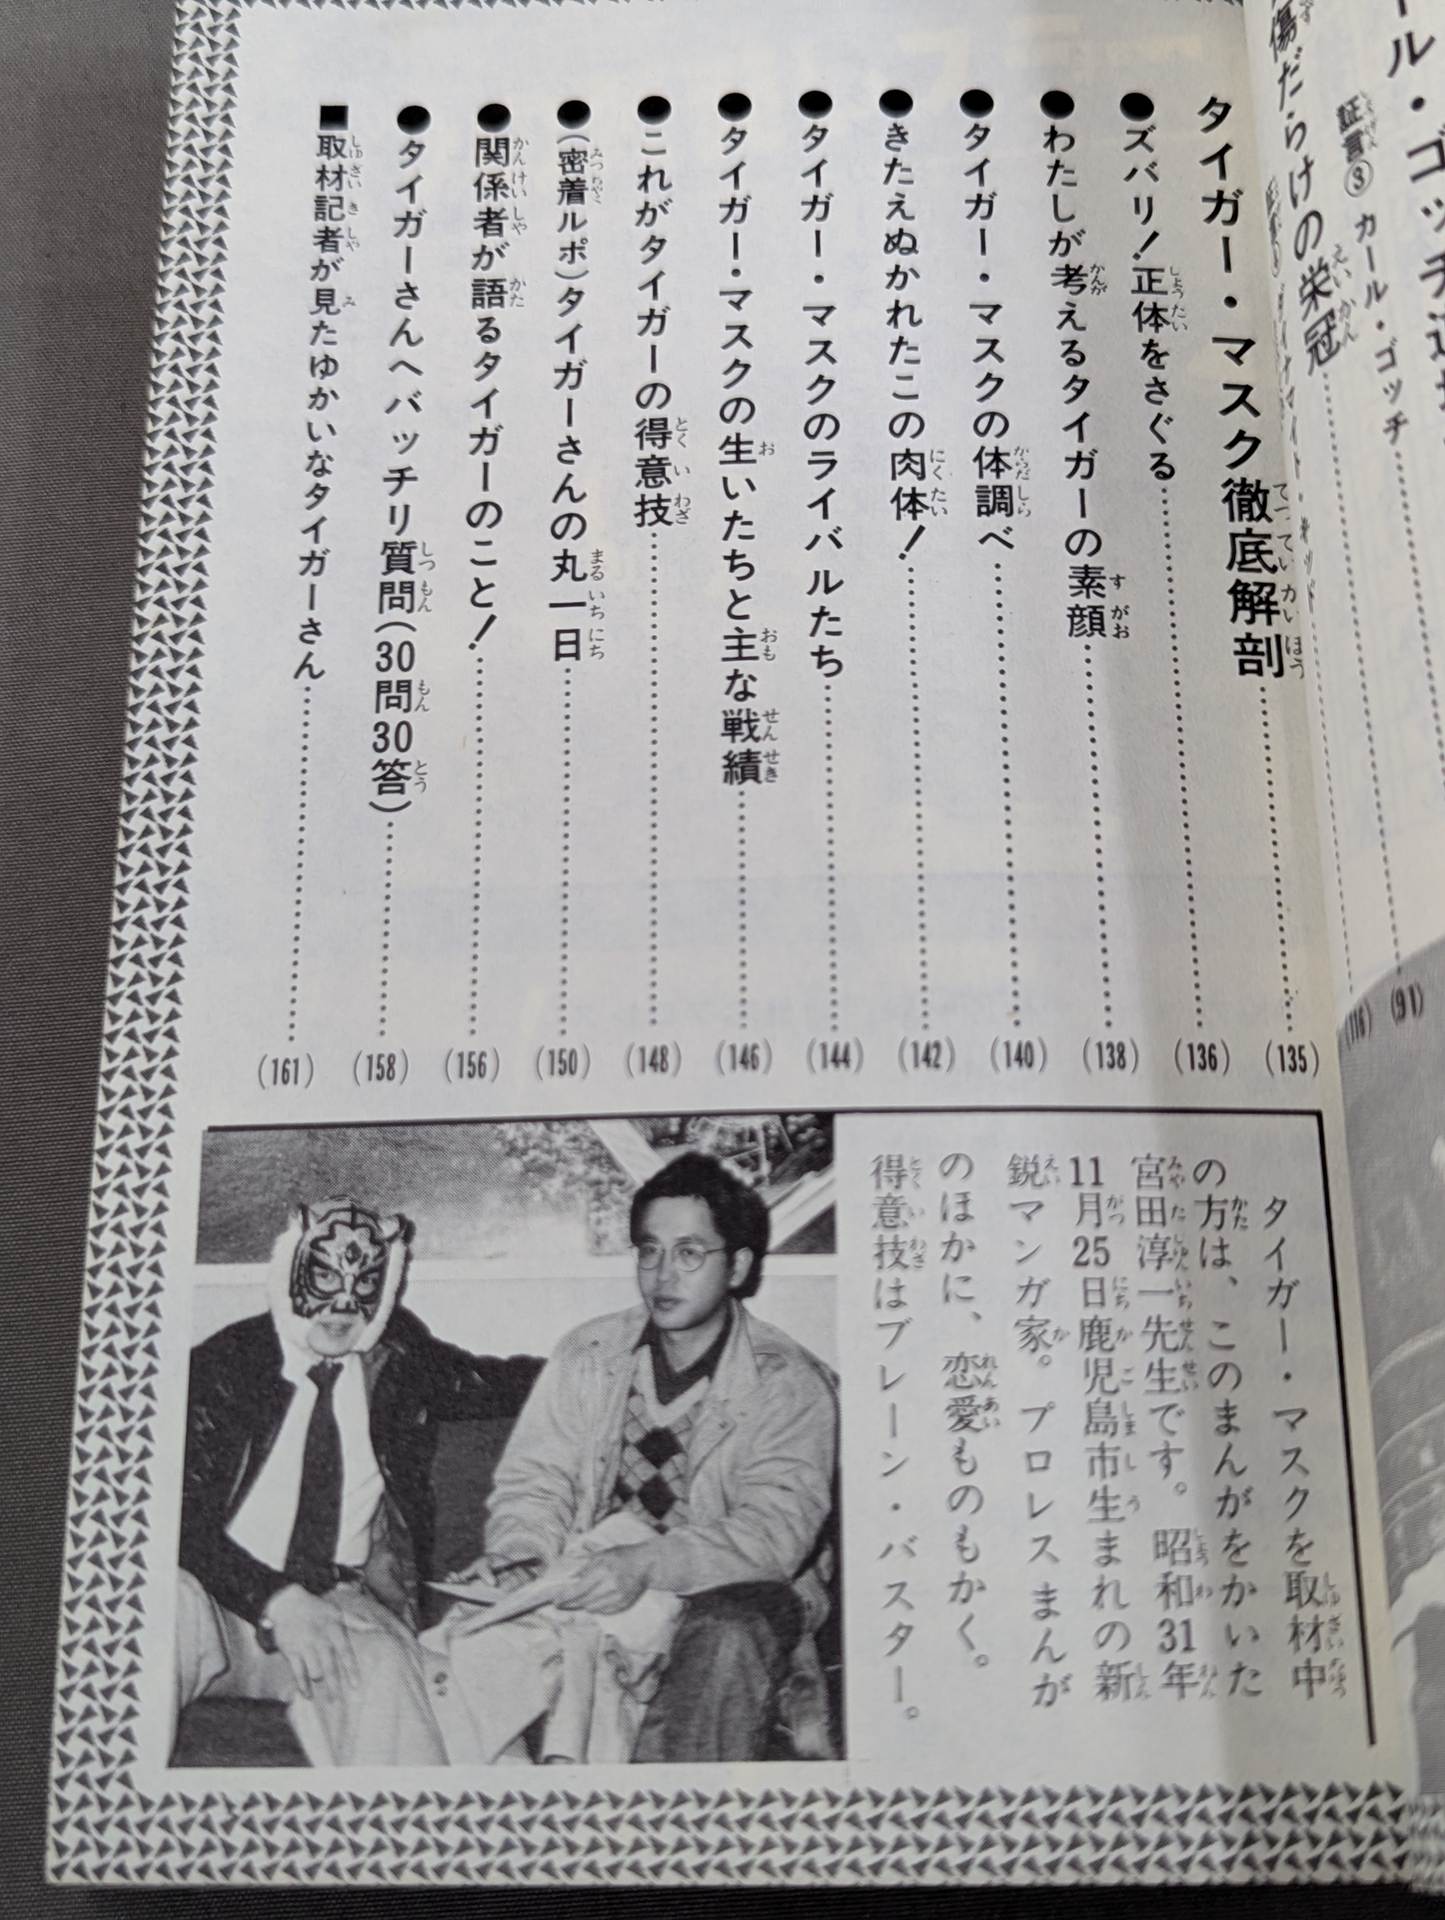 ル・ゴッチ
証言③ カール・ゴッチ
(91)
傷だらけの栄冠
(116)
タイガー・マスク徹底解剖……(135)
●ズバリ!正体をさぐる……(136)
●わたしが考えるタイガーの素顔……(138)
●タイガー・マスクの体調べ……(140)
●きたえぬかれたこの肉体!……(142)
●タイガー・マスクのライバルたち……(144)
●タイガー・マスクの生いたちと主な戦績……(146)
●これがタイガーの得意技……(148)
●(密着ルポ)タイガーさんの丸一日……(150)
●関係者が語るタイガーのこと!……(156)
●タイガーさんへバッチリ質問(30問30答)……(158)
■取材記者が見たゆかいなタイガーさん……(161)
タイガー・マスクを取材中
の方は、このまんがをかいた
宮田淳一先生です。昭和31年
11月25日鹿児島市生まれの新
鋭マンガ家。プロレスまんが
のほかに、恋愛ものもかく。
得意技はブレーン・バスター。